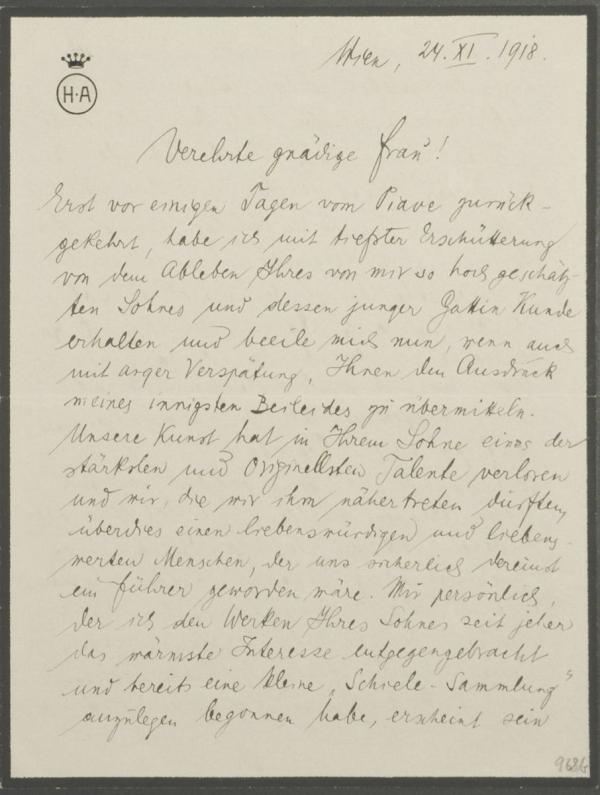 H·A
Wien, 24. XI. 1918.
Verehrte gnädige Frau!
Erst vor einigen Tagen vom Piave zurück-
gekehrt, habe ich mit tiefster Erschütterung
von dem Ableben Ihres von mir so hoch geschätz-
ten Sohnes und dessen junger Gattin Kunde
erhalten und beeile mich nun, wenn auch
mit arger Verspätung, Ihnen den Ausdruck
meines innigsten Beileides zu übermitteln.
Unsere Kunst hat in Ihrem Sohne eines der
stärksten und originellsten Talente verloren
und wir, die wir ihm nähertreten durften,
überdies einen liebenswürdigen und liebens-
werten Menschen, der uns sicherlich dereinst
ein Führer geworden wäre. Mir persönlich,
der ich den Werken Ihres Sohnes seit jeher
das wärmste Interesse entgegengebracht
und bereits eine kleine „Schiele-Sammlung"
anzulegen begonnen habe, erscheint sein